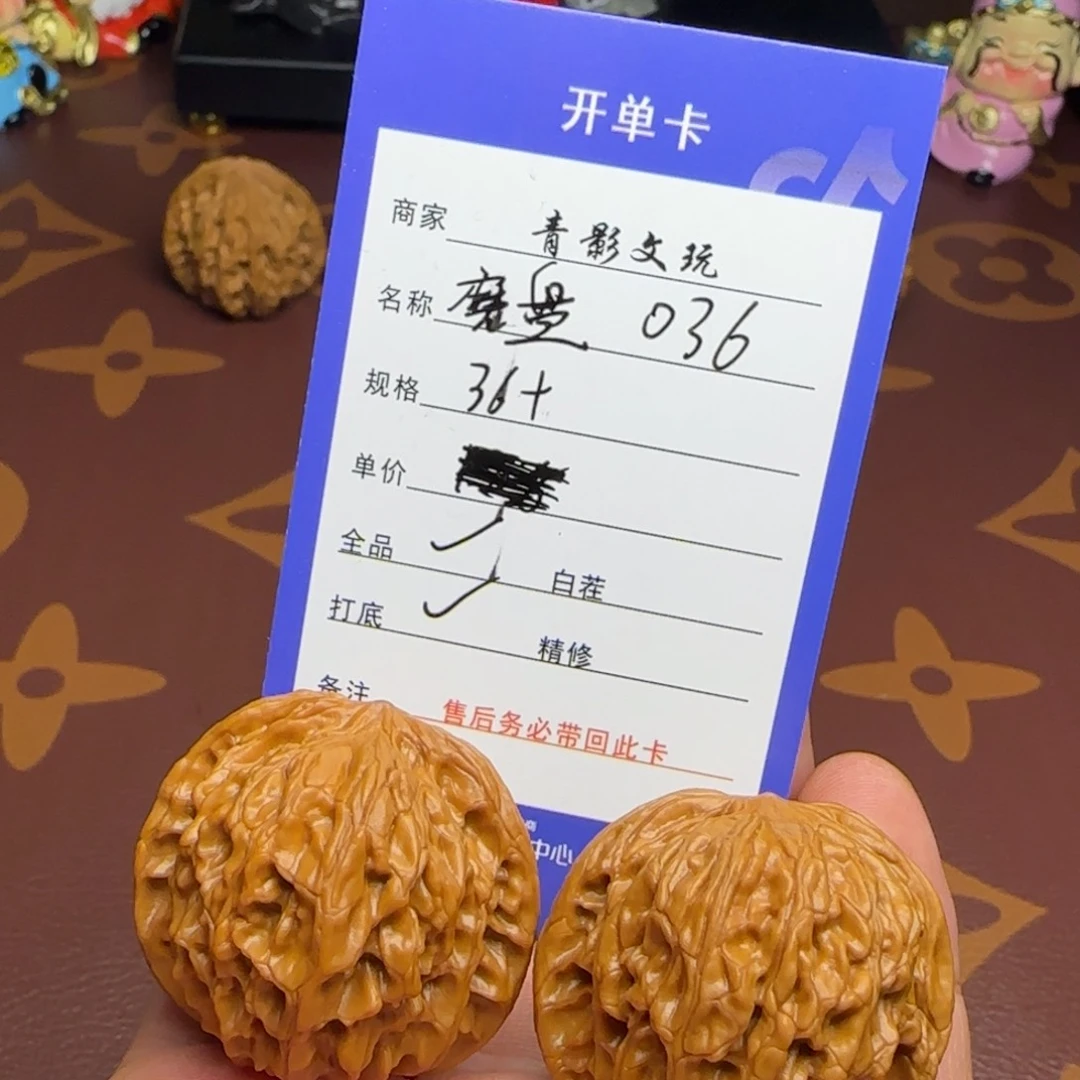 开单卡
商家 青影文玩
名称 磨盘 036
规格 36+
单价
全品 ✓ 白茬
打底 ✓ 精修
备注 售后务必带回此卡
中心